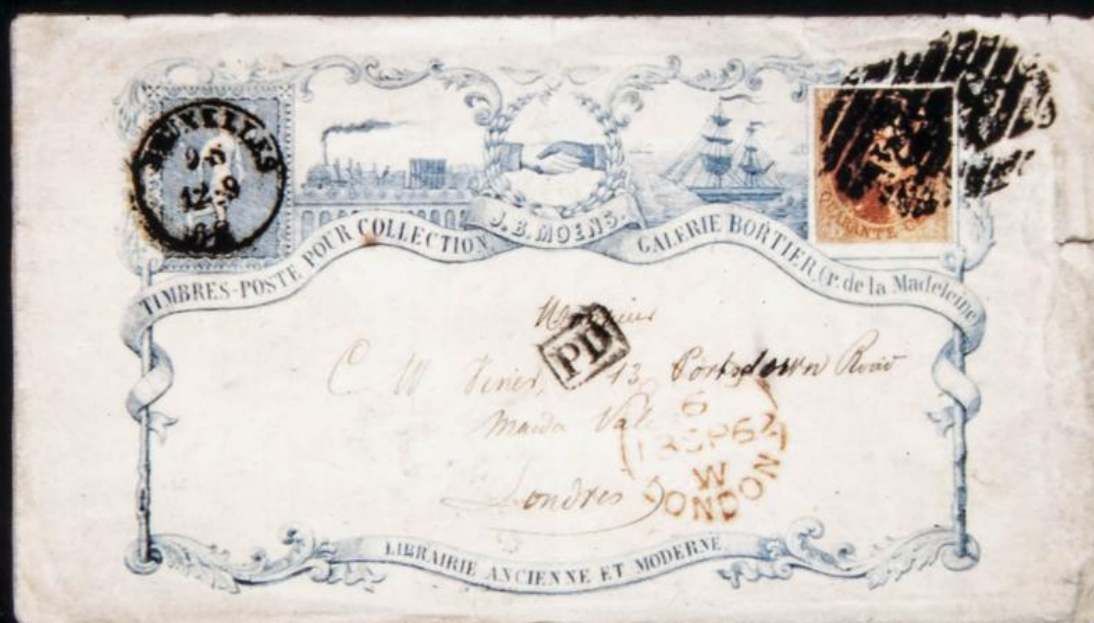 BRUXELLES
9-S
12-9
J. B. MOENS.
TIMBRES-POSTE POUR COLLECTION.
GALERIE BORTIER, (r. de la Madeleine
QUARANTE
Monsieur
PD
C W Viner, 13 Portsdown Road
Maida Vale
Londres
6
13 SP 62
W
LONDON
LIBRAIRIE ANCIENNE ET MODERNE